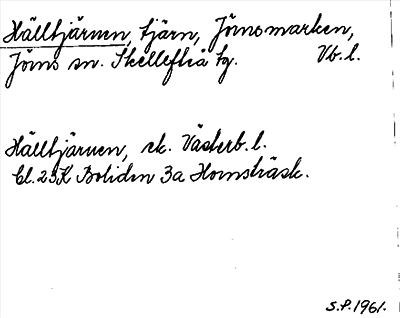 Hälltjärnen, tjärn, Jörnsmarken,
Jörns sn. Skellefteå tg. Vb.l.
Hälltjärnen, ek. Västerb. l.
Bl. 23K Boliden 3a Hornsträsk.
S.P. 1961.